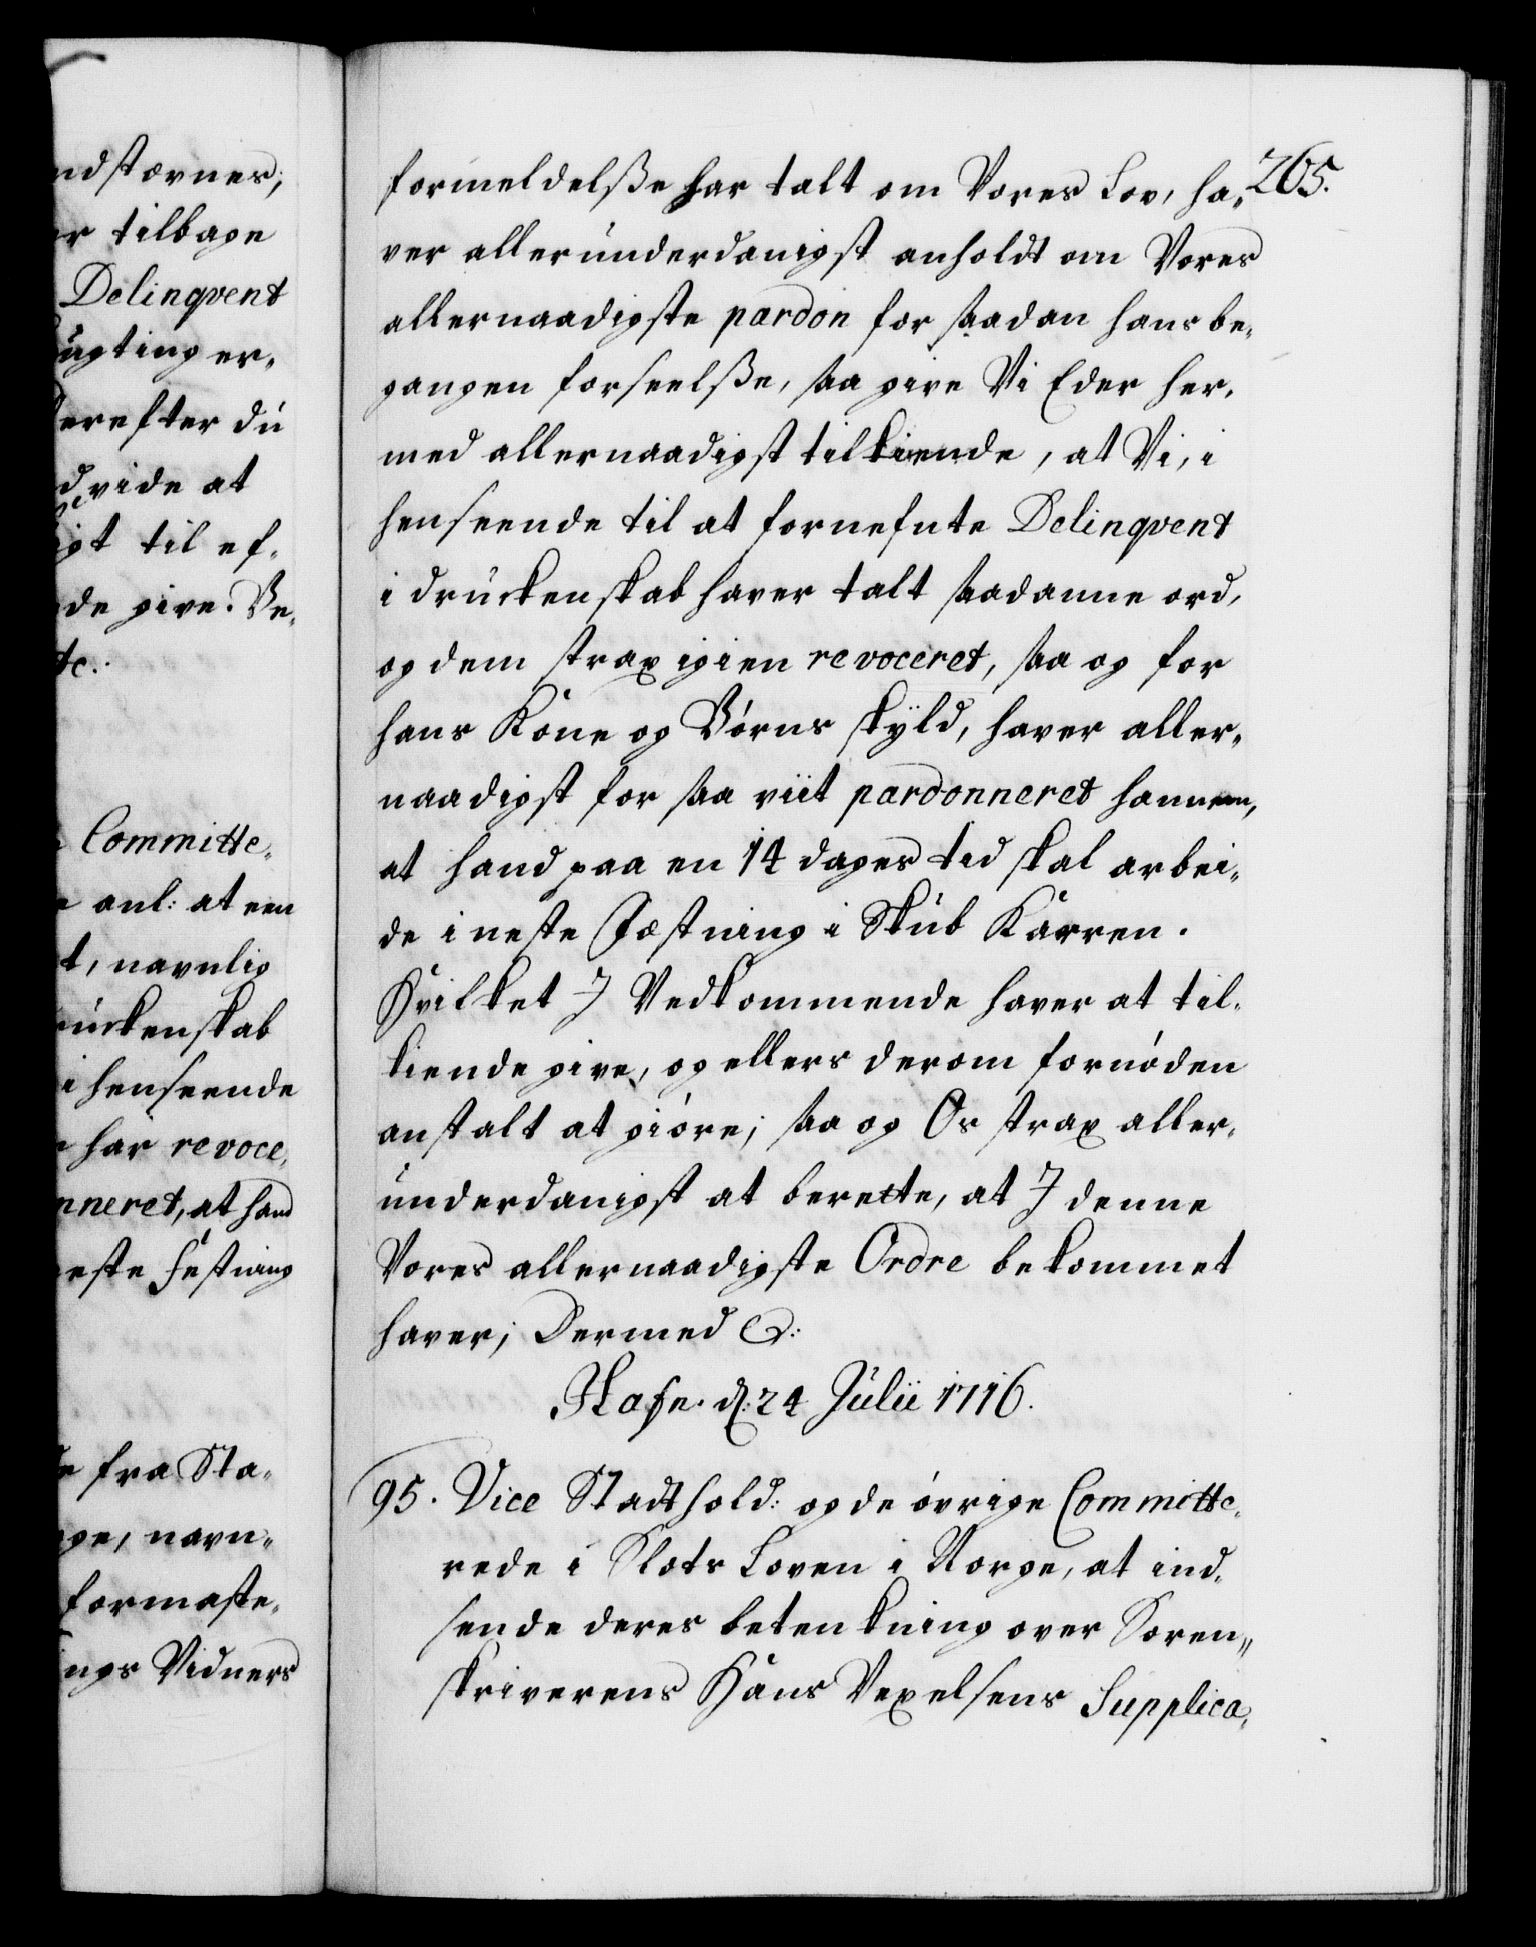 ndstævner;
r tilbage
Delinqvent
ugting er-
erefter du
dvide at
igt til ef-
de give. Be-
tc.
Committe-
anl: at een
t, navnlig
ruckenskab
i henseende
har revoce-
nneret, at hand
este Festning
fra Sta-
ge, navn-
formaste-
ngs Vidners
265.
formeldelsse har talt om Vores Lov, ha-
ver allerunderdanigst anholdt om Vores
allernaadigste pardon for saadan hans be-
gangen forseelsse, saa give Vi Eder her-
med allernaadigst tilkiende, at Vi, i
henseende til at fornefnte Delinqvent
i druckenskab haver talt saadanne ord,
og dem strax igien revoceret, saa og for
hans Kone og Børns skyld, haver aller-
naadigst for saa viit pardonneret hannem,
at hand paa en 14 dages tid skal arbei-
de i neste Fæstning i Skub Karren.
Hvilket I Vedkommende haver at til-
kiende give, og ellers derom fornøden
anstalt at giøre; saa og Os strax aller-
underdanigst at berette, at I denne
Vores allernaadigste Ordre bekommet
haver; Dermed &:
Hafn. d. 24 Julii 1716.
95. Vice Stadthold: og de øvrige Committe-
rede i Slots Loven i Norge, at ind-
sende deres betenkning over Soren-
skriverens Hans Vexelsens Supplica-